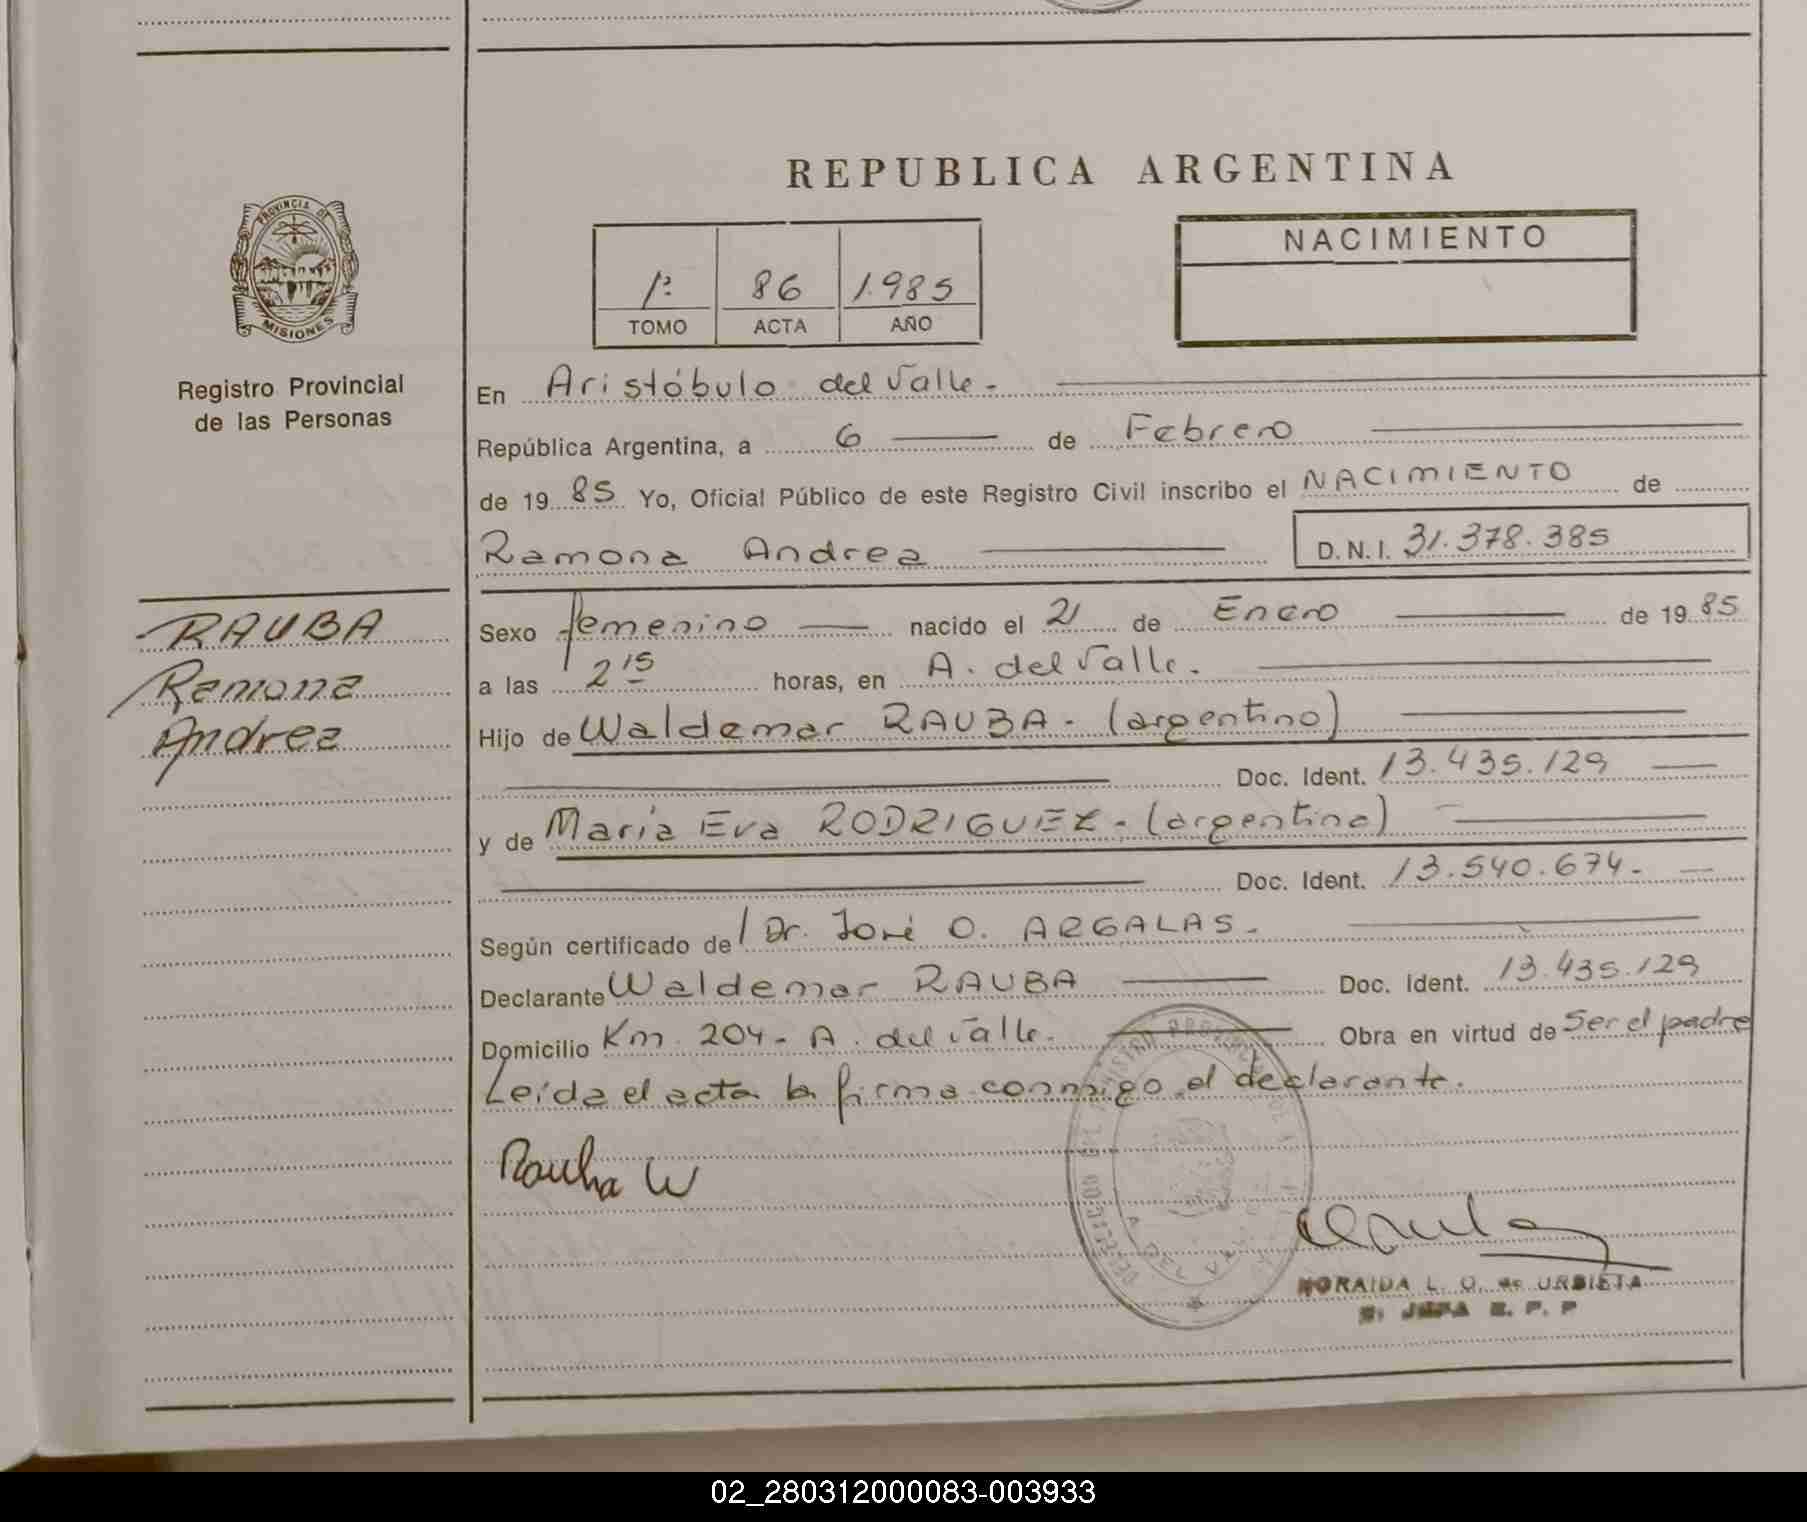 REPUBLICA ARGENTINA
PROVINCIA DE
MISIONES
Registro Provincial
de las Personas
1º 86 1.985
TOMO ACTA AÑO
NACIMIENTO
En Aristóbulo del Valle.-
República Argentina, a 6 de Febrero
de 1985 Yo, Oficial Público de este Registro Civil inscribo el NACIMIENTO de
Ramona Andrea D.N.I. 31.378.385
RAUBA
Ramona
Andrea
Sexo femenino nacido el 21 de Enero de 1985
a las 2 15 horas, en A. del Valle.
Hijo de Waldemar RAUBA - (argentino)
Doc. Ident. 13.435.129
y de María Eva RODRIGUEZ - (argentina)
Doc. Ident. 13.540.674.-
Según certificado de Dr. José O. ARGALAS.
Declarante Waldemar RAUBA Doc. Ident. 13.435.129
Domicilio Km 204 - A. del Valle. Obra en virtud de Ser el padre
Leída el acta la firma conmigo el declarante.
Rauba W
NORAIDA L. O. de URBIETA
JEFA R. P. P
02_280312000083-003933